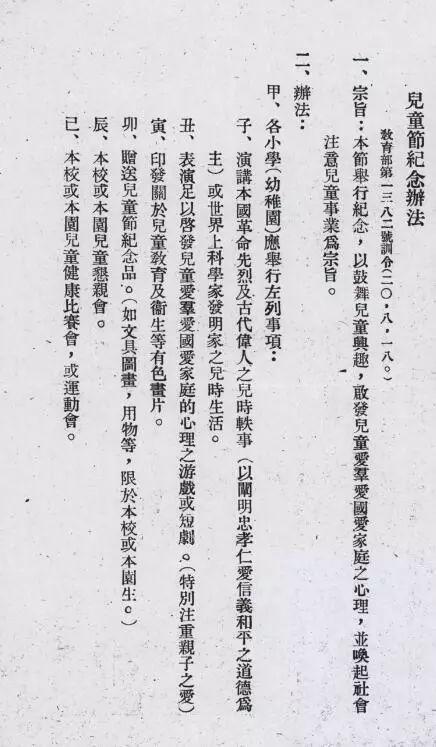 兒童節紀念辦法
敎育部第一三八二號訓令(二〇·八·一八。)
一、宗旨：本節舉行紀念，以鼓舞兒童興趣，啟發兒童愛羣愛國愛家庭之心理，並喚起社會
注意兒童事業爲宗旨。
二、辦法：
甲、各小學(幼稚園)應舉行左列事項：
子、演講本國革命先烈及古代偉人之兒時軼事(以闡明忠孝仁愛信義和平之道德爲
主)或世界上科學家發明家之兒時生活。
丑、表演足以啓發兒童愛羣愛國愛家庭的心理之游戲或短劇。(特別注重親子之愛)
寅、印發關於兒童敎育及衞生等有色畫片。
卯、贈送兒童節紀念品。(如文具圖畫，用物等，限於本校或本園生。)
辰、本校或本園兒童懇親會。
已、本校或本園兒童健康比賽會，或運動會。